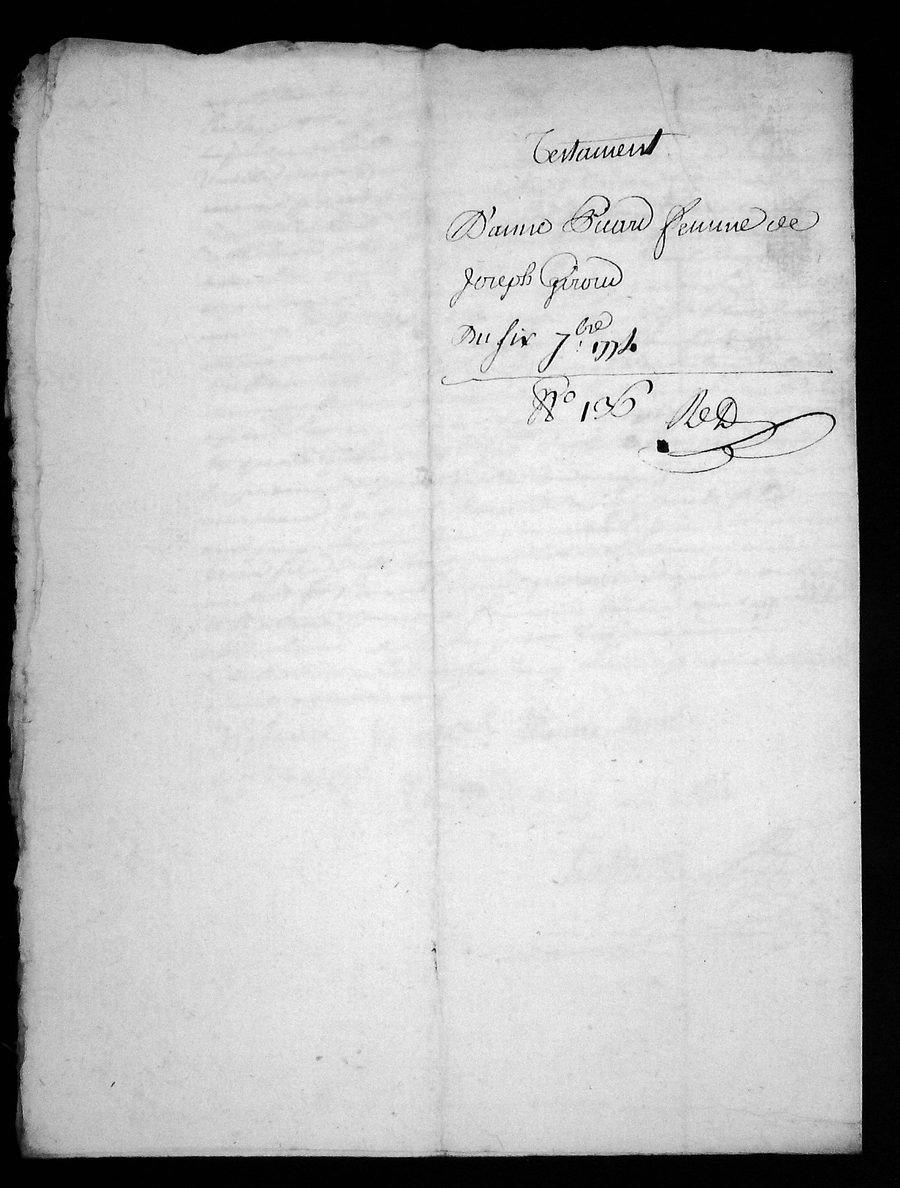 Testament
D'anne Picard femme de
Joseph Giroud
Du six 7.bre 1774
N.o 136